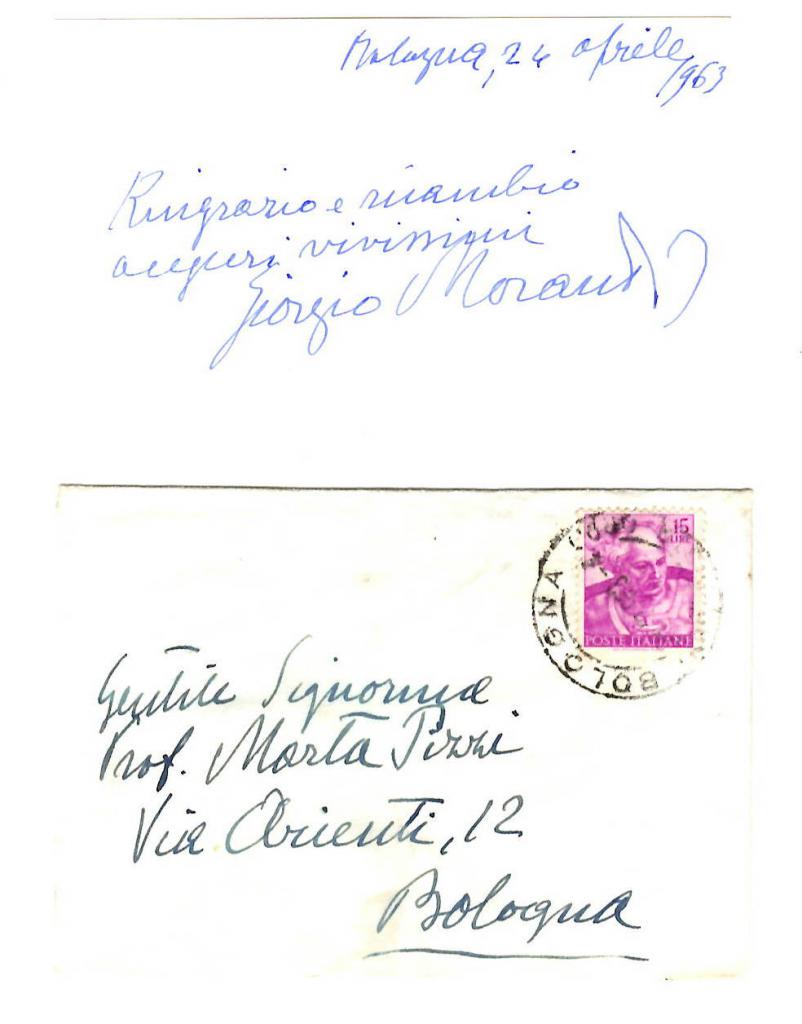 Bologna, 24 aprile
1963
Ringrazio e ricambio
auguri vivissimi
Giorgio Morandi
15
LIRE
POSTE ITALIANE
BOLOGNA
Gentile Signorina
Prof. Marta Pizzi
Via Orienti, 12
Bologna